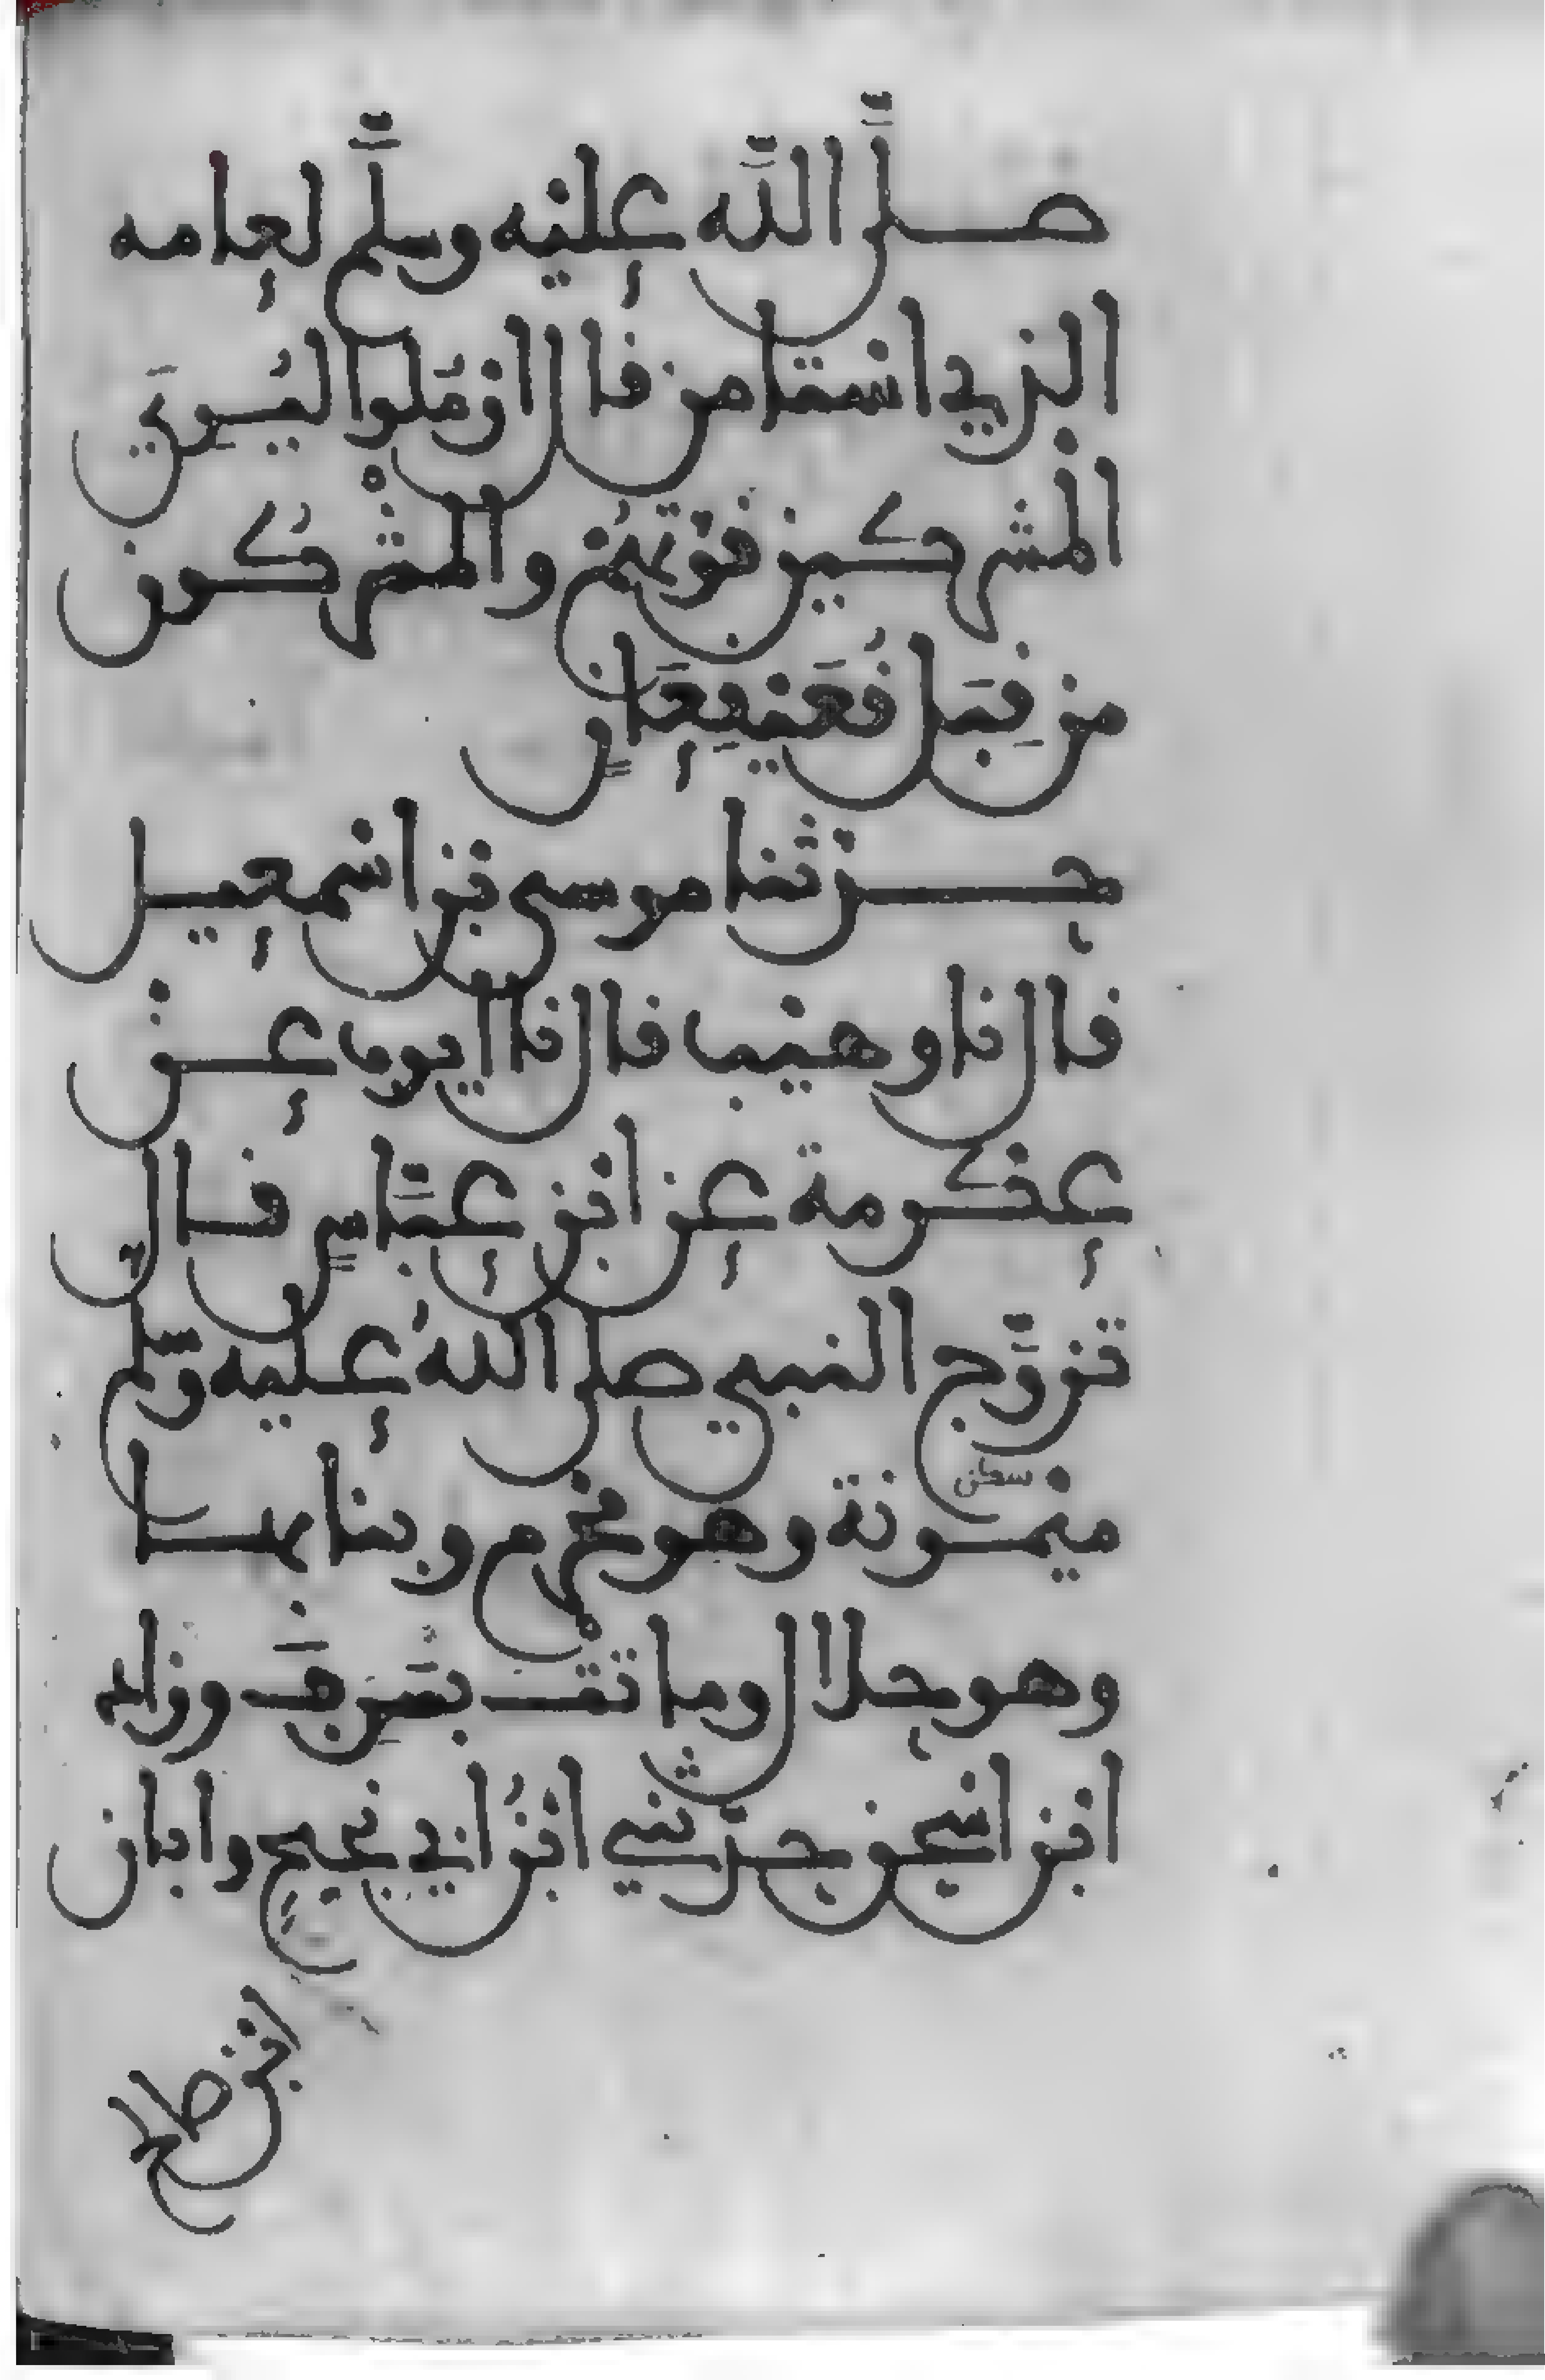 صلى الله عليه وسلم لعامه
الذي استامن قال ارملوا ليري
المشركين قوتهم والمشركون
من قبل قعيقعان
حدثنا موسى بن اسمعيل
قال نا وهيب قال نا ايوب عن
عكرمة عن ابن عباس قال
تزوج النبي صلى الله عليه وسلم
ميمونة وهو محرم وبنا بها
وهو حلال وماتت بسرف وزاد
ابن اسحق حدثني ابن ابي نجيح وابان
ابن صالح